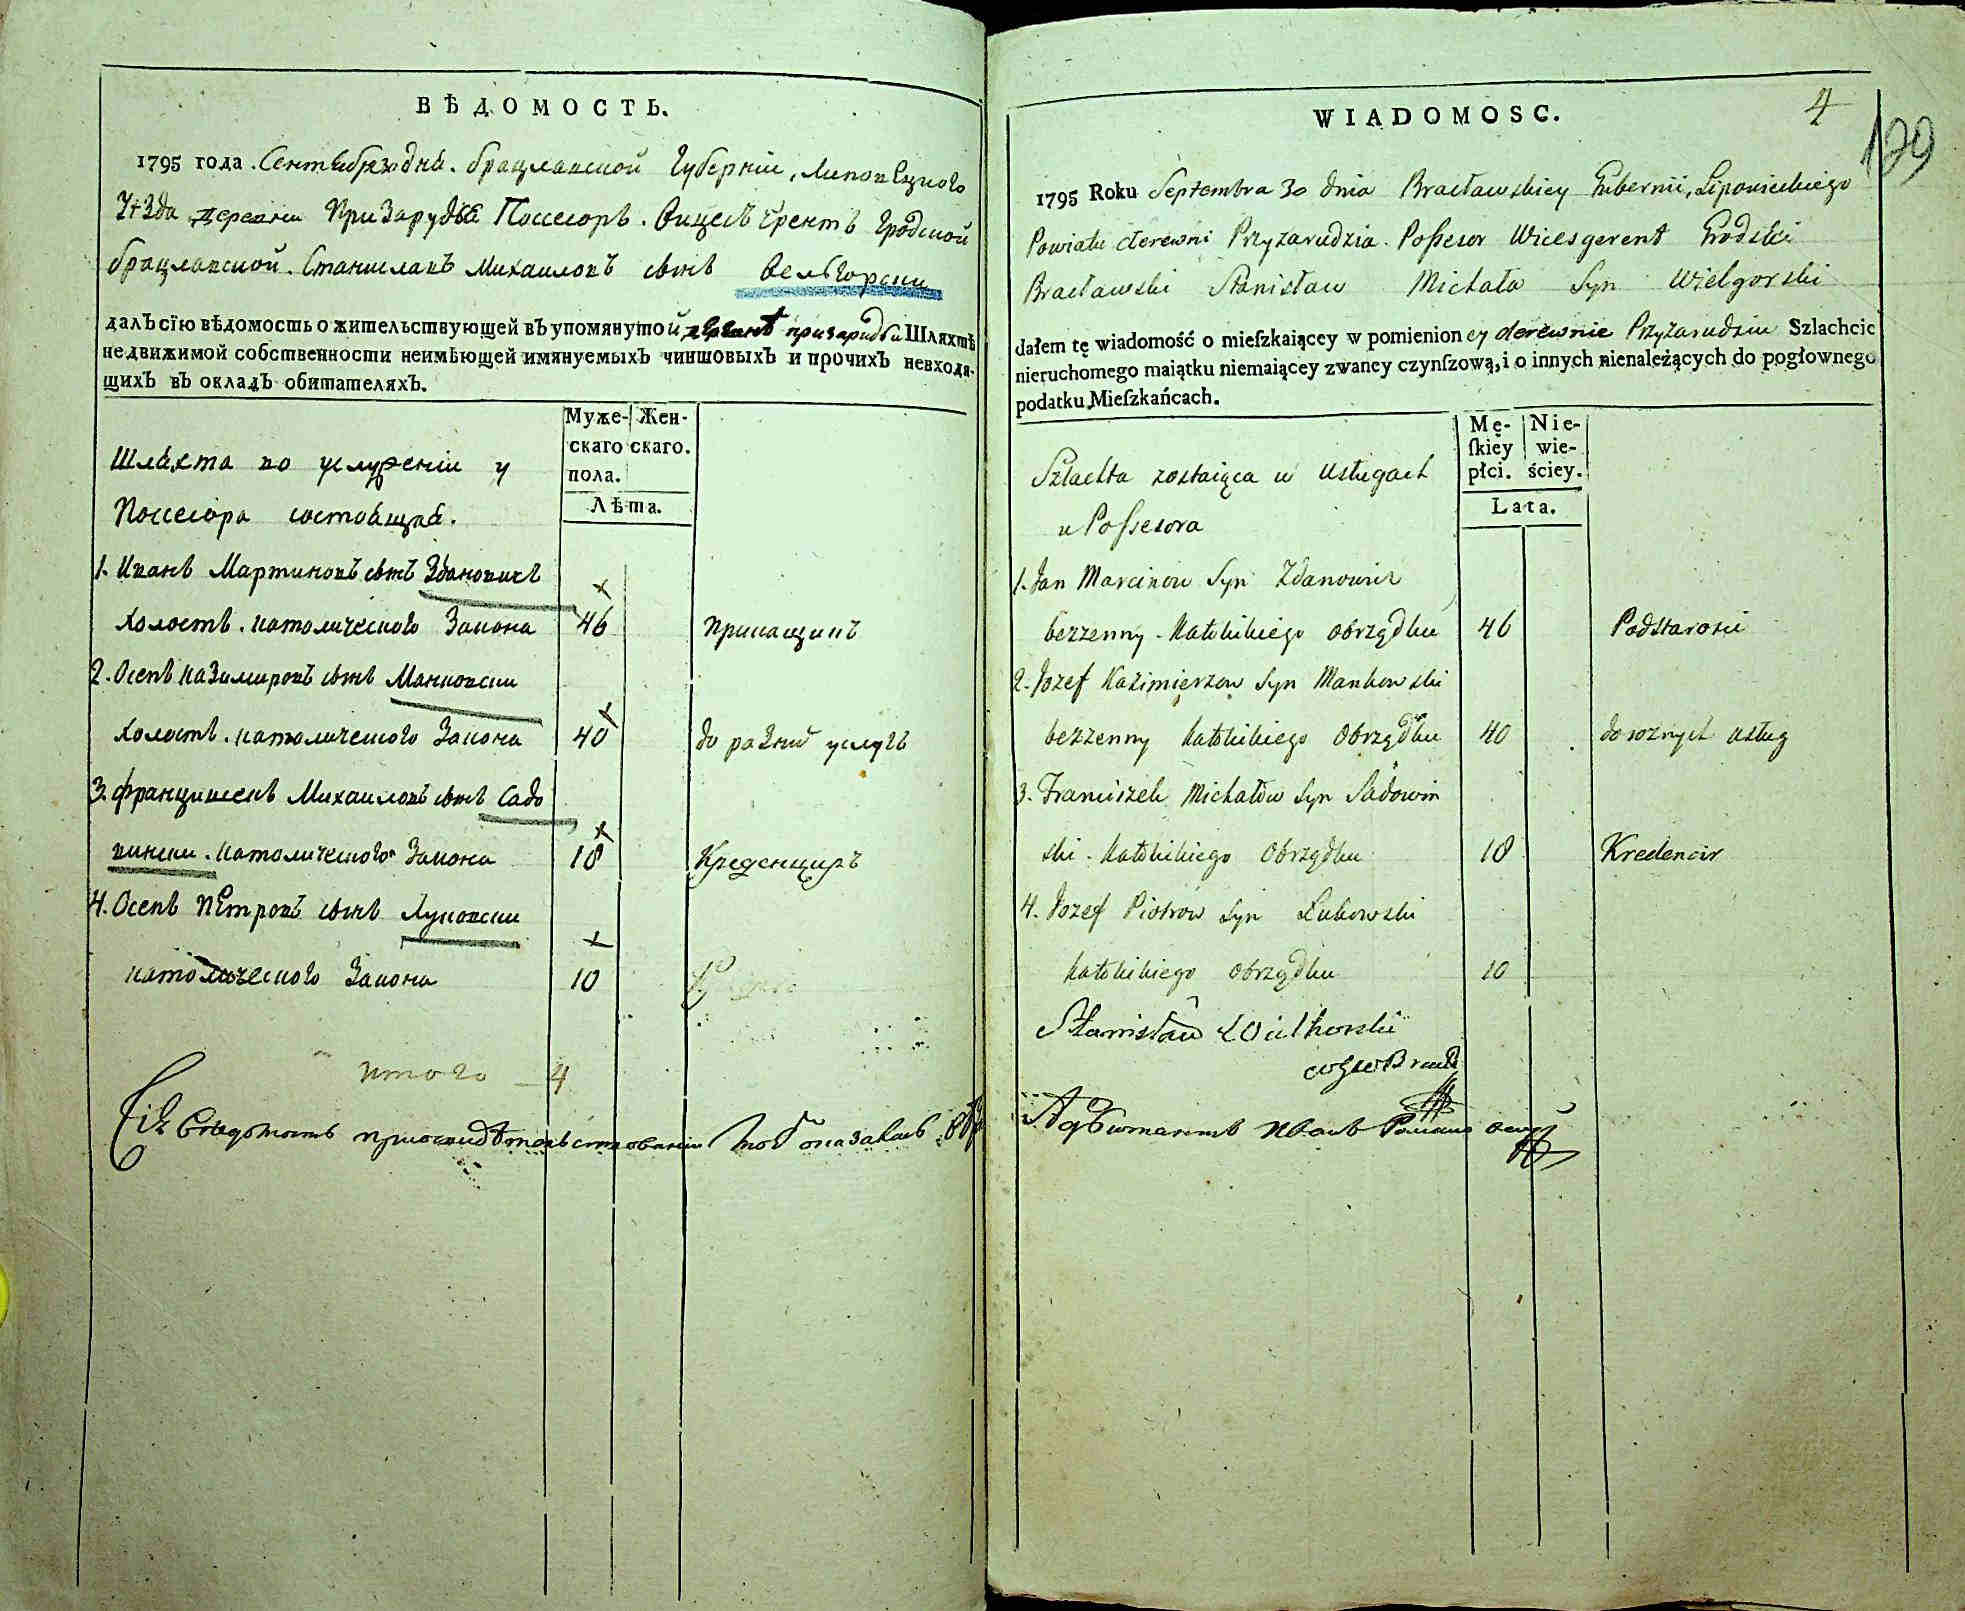 ВѢДОМОСТЬ.
1795 года. Сентября 30 дня. Брацлавской Губернїи, Липовецкого
Уезда деревни Призарудья Поссесоръ. Вицесъгерентъ Гродской
брацлавской. Станиславъ Михаиловъ сынъ Вельгорски
далъ сїю вѣдомость о жительствующей въ упомянутой деревнѣ призарудьи Шляхтѣ
недвижимой собственности неимѣющей имянуемыхъ чиншовыхъ и прочихъ невходя-
щихъ въ окладъ обитателяхъ.
Муже-скаго пола. Жен-скаго.
Лѣта.
Шляхта во услуженіи у
Поссесора состоящая.
1. Иванъ Мартиновъ сынъ Здановичъ
холостъ. католического Закона 46 прикащикъ
2. Осепъ Казимировъ сынъ Манковски
холостъ. католического Закона 40 до разних услугъ
3. Францишекъ Михаиловъ сынъ Садо
вински. католического Закона 18 Креденциръ
4. Осепъ Петровъ сынъ Луковски
католического Закона 10
итого 4
WIADOMOSC.
4
129
1795 Roku Septembra 30 dnia Bracławskiey Gubernii, Lipowieckiego
Powiatu derewni Przyzarudzia. Possesor Wicesgerent Grodski
Bracławski Stanisław Michała Syn Wielgorski
dałem tę wiadomość o mieſzkaiącey w pomienioney derewnie Przyzarudziu Szlachcie
nieruchomego maiątku niemaiącey zwaney czynſzową, i o innych nienależących do pogłownego
podatku Mieſzkańcach.
Mę-ſkiey płci. Nie-wie-ściey.
Lata.
Szlachta zostaiąca w usługach
u Possesora
1. Jan Marcinow Syn Zdanowicz
bezzenny - Katolickiego obrządku 46 Podstarosci
2. Jozef Kazimierzow Syn Mankowski
bezzenny Katolickiego Obrządku 40 do roznych usług
3. Franciszek Michałow Syn Sadowin
ski - Katolickiego Obrządku 18 Kredencir
4. Jozef Piotrow Syn Łukowski
Katolickiego Obrządku 10
Stanisław Wielhorski